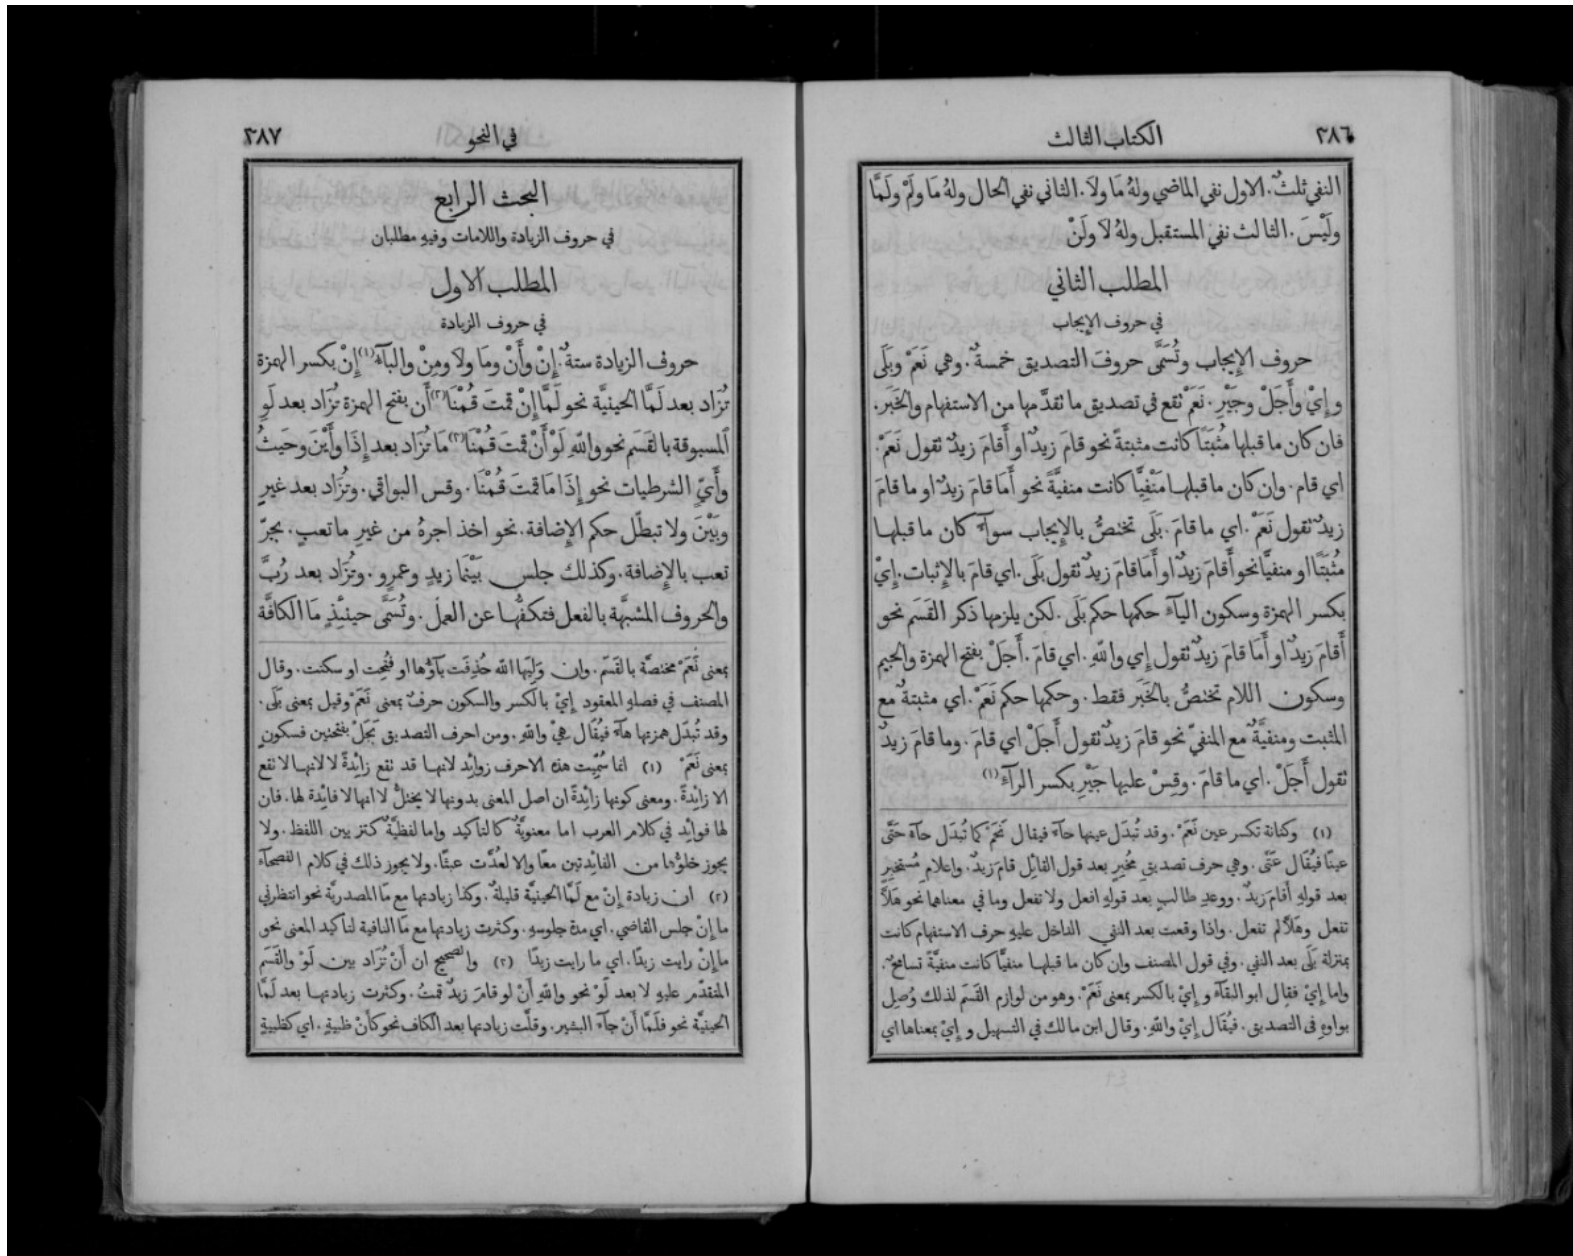 ٣٨٦
الكتاب الثالث
النفي ثلثٌ. الاول نفي الماضي ولهُ مَا ولاَ. الثاني نفي الحال ولهُ مَا ولَمْ ولَمَّا
ولَيْسَ. الثالث نفي المستقبل ولهُ لاَ ولَنْ
المطلب الثاني
في حروف الإيجاب
حروف الإِيجاب وتُسَمَّى حروفَ التصديق خمسةٌ. وهي نَعَمْ وبَلَى
وإِيْ وأَجَلْ وجَيْرِ. نَعَمْ تقع في تصديق ما تقدَّمها من الاستفهام والخَبَر.
فان كان ما قبلها مُثبَتًا كانت مثبتةً نحو قامَ زيدٌ او أَقامَ زيدٌ تقول نَعَمْ.
اي قام. وان كان ما قبلها مَنْفِيًّا كانت منفيَّةً نحو أَمَا قامَ زيدٌ او ما قامَ
زيدٌ تقول نَعَمْ. اي ما قامَ. بَلَى تختصُّ بالإِيجاب سوآءٌ كان ما قبلها
مُثْبَتًا او منفيًّا نحو أَقامَ زيدٌ او أَمَا قامَ زيدٌ تقول بَلَى. اي قامَ بالإِثبات. إِيْ
بكسر الهمزة وسكون اليآء حكمها حكم بَلَى. لكن يلزمها ذكر القَسَم نحو
أَقامَ زيدٌ او أَمَا قامَ زيدٌ تقول إِي واللهِ. اي قامَ. أَجَلْ بفتح الهمزة والجيم
وسكون اللام تختصُّ بالخَبَر فقط. وحكمها حكم نَعَمْ. اي مثبتةٌ مع
المثبت ومنفيَّةٌ مع المنفيّ نحو قامَ زيدٌ تقول أَجَلْ اي قامَ. وما قامَ زيدٌ
تقول أَجَلْ. اي ما قامَ. وقِسْ عليها جَيْرِ بكسر الرآء (١)
(١) وكنانة تكسر عين نَعَمْ. وقد تُبدَل عينها حآءً فيقال نَحَمْ كما تُبدَل حآء حَتَّى
عينًا فيُقَال عَتَّى. وهي حرف تصديقِ مُخبِرٍ بعد قول القائل قامَ زيدٌ. وإعلامِ مُستخبِرٍ
بعد قولهِ أَقامَ زيدٌ. ووعدِ طالبٍ بعد قولهِ افعل ولا تفعل وما في معناهما نحو هَلاَّ
تفعل وهَلاَّ لم تفعل. واذا وقعت بعد النفي الداخل عليهِ حرف الاستفهام كانت
بمنزلة بَلَى بعد النفي. وفي قول المصنف وان كان ما قبلها منفيًّا كانت منفيَّةً تسامحٌ.
واما إِيْ فقال ابو البقآء وإِيْ بالكسر بمعنى نَعَمْ. وهو من لوازم القَسَم لذلك وُصِل
بواوهِ في التصديق. فيُقَال إِيْ واللهِ. وقال ابن مالك في التسهيل وإِيْ بمعناها اي
في النحو
٣٨٧
البحث الرابع
في حروف الزيادة واللامات وفيهِ مطلبان
المطلب الاول
في حروف الزيادة
حروف الزيادة ستةٌ. إِنْ وأَنْ ومَا ولاَ ومِنْ والبآءُ (١) إِنْ بكسر الهمزة
تُزَاد بعد لَمَّا الحينيَّة نحو لَمَّا إِنْ قمتَ قُمْنَا (٢) أَن بفتح الهمزة تُزَاد بعد لَوِ
المسبوقة بالقَسَم نحو واللهِ لَوْ أَنْ قمت قُمْنَا (٣) مَا تُزَاد بعد إِذَا وأَيْنَ وحَيثُ
وأَيٍّ الشرطيات نحو إِذَا مَا قمتَ قُمْنَا. وقس البواقي. وتُزَاد بعد غيرِ
وبَيْنَ ولا تبطّل حكم الإِضافة. نحو اخذ اجرهُ من غيرِ ما تعبٍ. بجرّ
تعب بالإِضافة. وكذلك جلس بَيْنَمَا زيدٍ وعمرٍو. وتُزَاد بعد رُبَّ
والحروف المشبهَّة بالفعل فتكفُّها عن العمل. وتُسَمَّى حينئِذٍ مَا الكافَّة
بمعنى نَعَمْ مختصَّة بالقَسَم. وان وَلِيَها الله حُذِفَت يآؤُها او فُتِحت او سكنت. وقال
المصنف في فصلهِ المعقود إِيْ بالكسر والسكون حرفٌ بمعنى نَعَمْ وقيل بمعنى بَلَى.
وقد تُبدَل همزتها هآءً فيُقَال هِيْ واللهِ. ومن احرف التصديق بَجَلْ بفتحتين فسكونٍ
بمعنى نَعَمْ (١) انما سُمِّيت هذه الاحرف زوائد لانها قد تقع زائِدةً لا لانها لا تقع
الا زائِدةً. ومعنى كونها زائِدةً ان اصل المعنى بدونها لا يختلُّ لا انها لا فائِدة لها. فان
لها فوائِد في كلام العرب اما معنويَّةٌ كالتأكيد واما لفظيَّةٌ كتزيين اللفظ. ولا
يجوز خلوُّها من الفائِدتين معًا والا لعُدَّت عبثًا. ولا يجوز ذلك في كلام الفصحآء
(٢) ان زيادة إِنْ مع لَمَّا الحينيَّة قليلةٌ. وكذا زيادتها مع مَا المصدريَّة نحو انتظرني
ما إِنْ جلس القاضي. اي مدة جلوسهِ. وكثرت زيادتها مع مَا النافية لتأكيد المعنى نحو
ما إِنْ رايت زيدًا. اي ما رايت زيدًا (٣) والصحيح ان أَنْ تُزَاد بين لَوْ والقَسَم
المتقدّم عليهِ لا بعد لَوْ نحو واللهِ أَنْ لو قامَ زيدٌ قمتُ. وكثرت زيادتها بعد لَمَّا
الحينيَّة نحو فلَمَّا أَنْ جآءَ البشير. وقلَّت زيادتها بعد الكاف نحو كأَنْ ظبيةٍ. اي كظبيةٍ